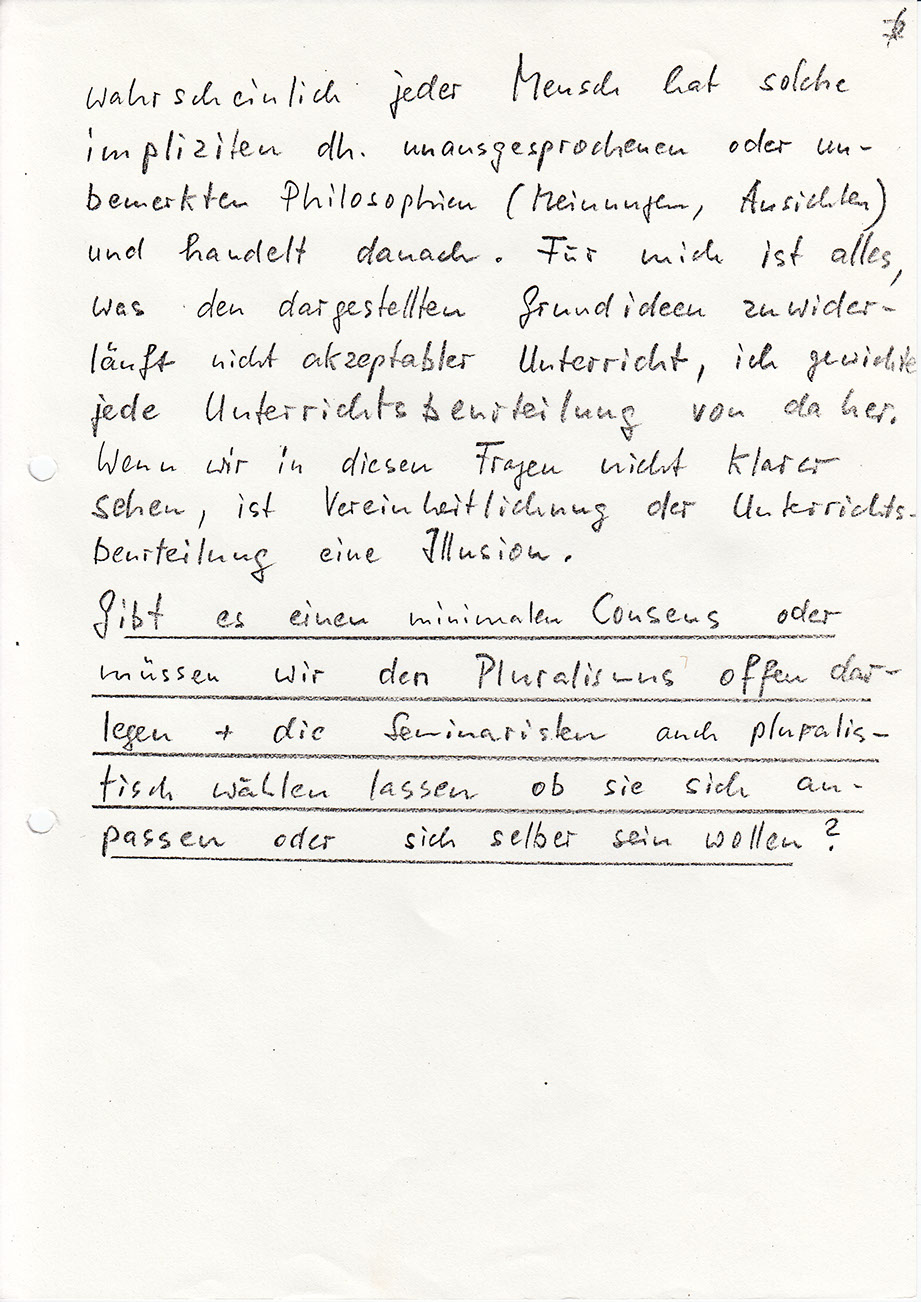 wahrscheinlich jeder Mensch hat solche
impliziten dh. unausgesprochenen oder un-
bemerkten Philosophien (Meinungen, Ansichten)
und handelt danach. Für mich ist alles,
was den dargestellten Grundideen zuwider-
läuft nicht akzeptabler Unterricht, ich gewichte
jede Unterrichtsbeurteilung von da her.
Wenn wir in diesen Fragen nicht klarer
sehen, ist Vereinheitlichung der Unterrichts-
beurteilung eine Illusion.
Gibt es einen minimalen Consens oder
müssen wir den Pluralismus offen dar-
legen + die Seminaristen auch pluralis-
tisch wählen lassen ob sie sich an-
passen oder sich selber sein wollen?